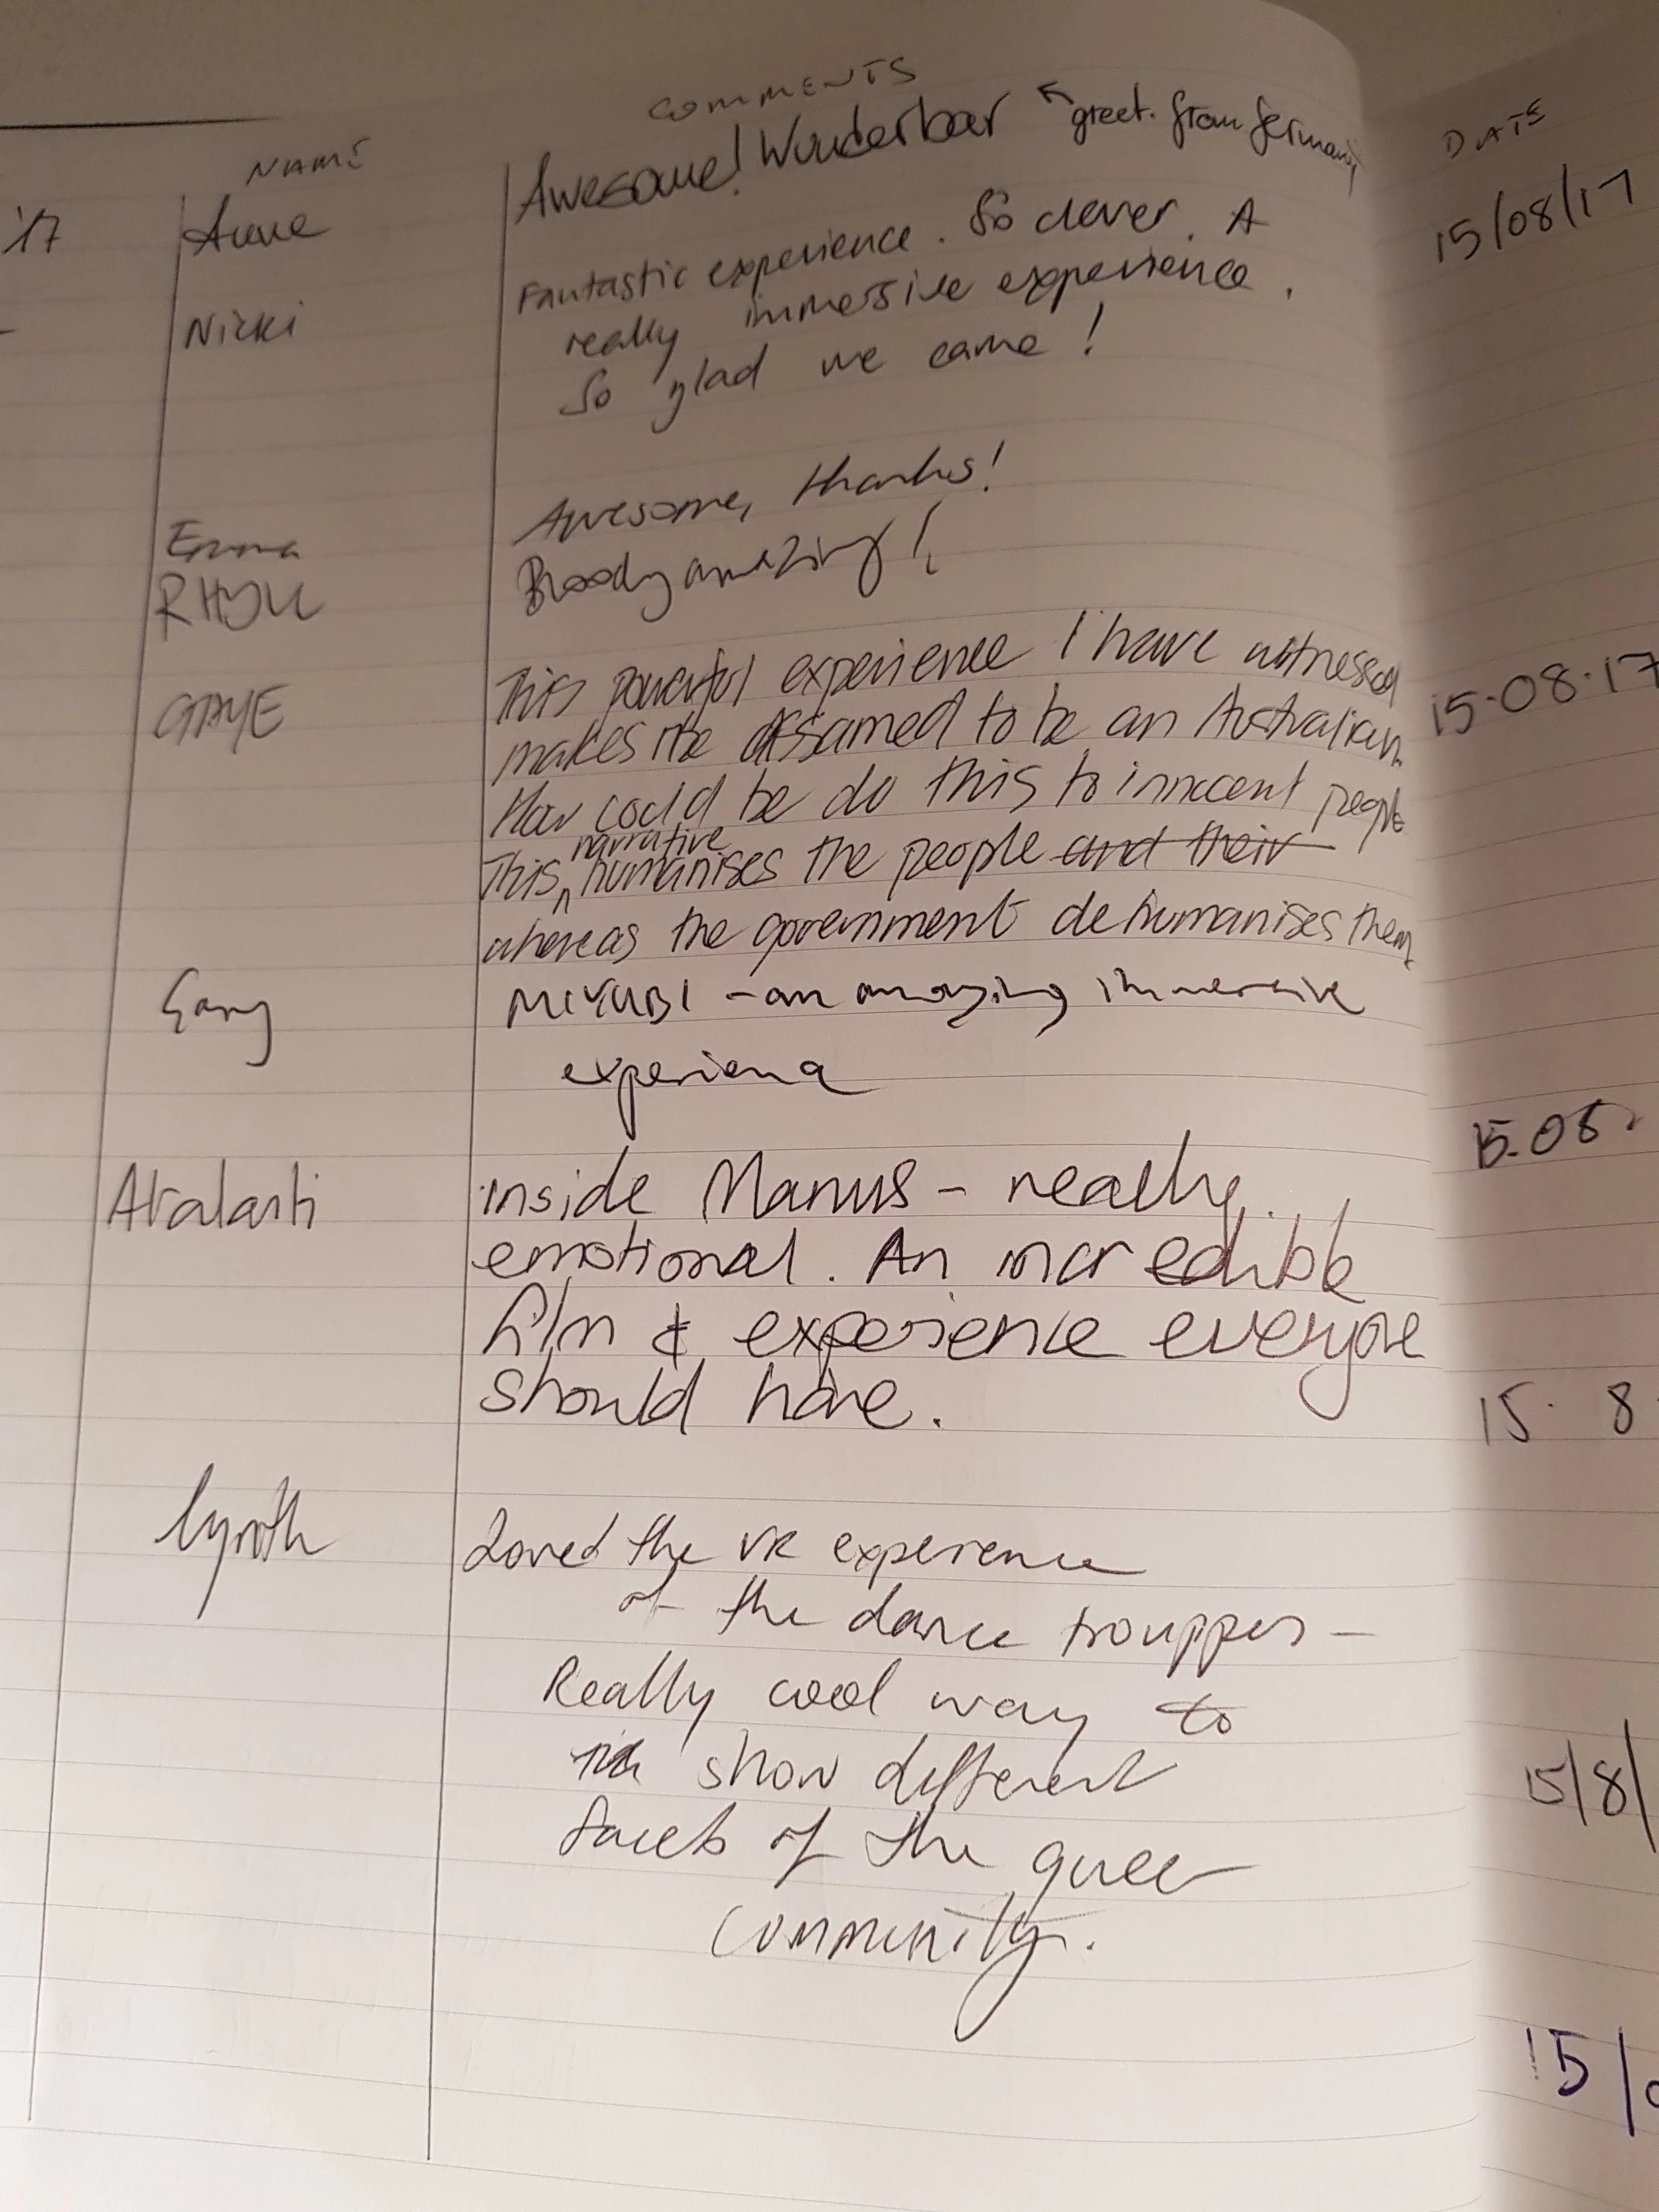 NAME COMMENTS DATE
'17 Anne Awesome! Wunderbar ↖ greet. from Germany 15/08/17
Nicki Fantastic experience. So clever. A
really immersive experience.
So glad we came!
Emma Awesome, thanks!
Bloody amazing!
GAYE This powerful experience I have witnessed 15.08.17
makes me assamed to be an Australian.
How could be do this to innocent people
narrative
This ^ humanises the people and their
whereas the government dehumanises them
Gary MIYUBI - an amazing immersive
experience
15.08.
inside Manus - really
emotional. An incredible
film & experience everyone
should have. 15. 8
Loved the VR experience
of the dance trouppes -
Really cool way to
show different 15/8/
facets of the queer
community.
15/